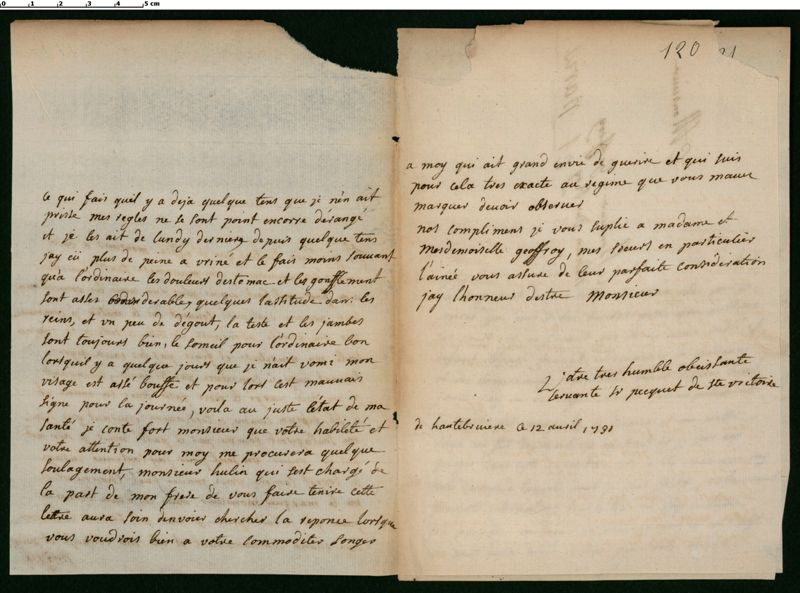 0 1 2 3 4 5 cm
ce qui fais quil y a deja quelque tens que je n'en ait
prisse mes regles ne se sont point encorre derangé
et je les ait de lundy derniere depuis quelque tens
jay eü plus de peine a vriné et le fais moins souvant
qu'a l'ordinaire les douleurs destomac et les gonfflement
sont asses considerable, quelques lastitude dans les
reins, et vn peu de dégout, la teste et les jambes
sont toujours bien, le someil pour l'ordinaire bon
lorsquil y a quelque jours que je n'ait vomi mon
visage est assé bouffe et pour lors cest mauvais
signe pour la journée, voila au juste l'état de ma
santé je conte fort monsieur que votre habileté et
votre attention pour moy me procurera quelque
soulagement, monsieur hulin qui sest chargé de
la part de mon frere de vous faire tenire cette
lettre aura soin denvoier chercher la reponce lorsque
vous voudrois bien a votre commoditer songer
120 21
a moy qui ait grand envie de guerire et qui suis
pour cela tres exacte au regime que vous maues
marquer devoir observer
nos compliment je vous suplie a madame et
mesdemoiselle geoffroy, mes soeurs en particulier
l'ainée vous assure de leur parfaite consideration
jay lhonneur destre Monsieur
Votre tres humble obeissante
servante Sr pecquet de ste victoire
de hautebruiere ce 12 auril 1731